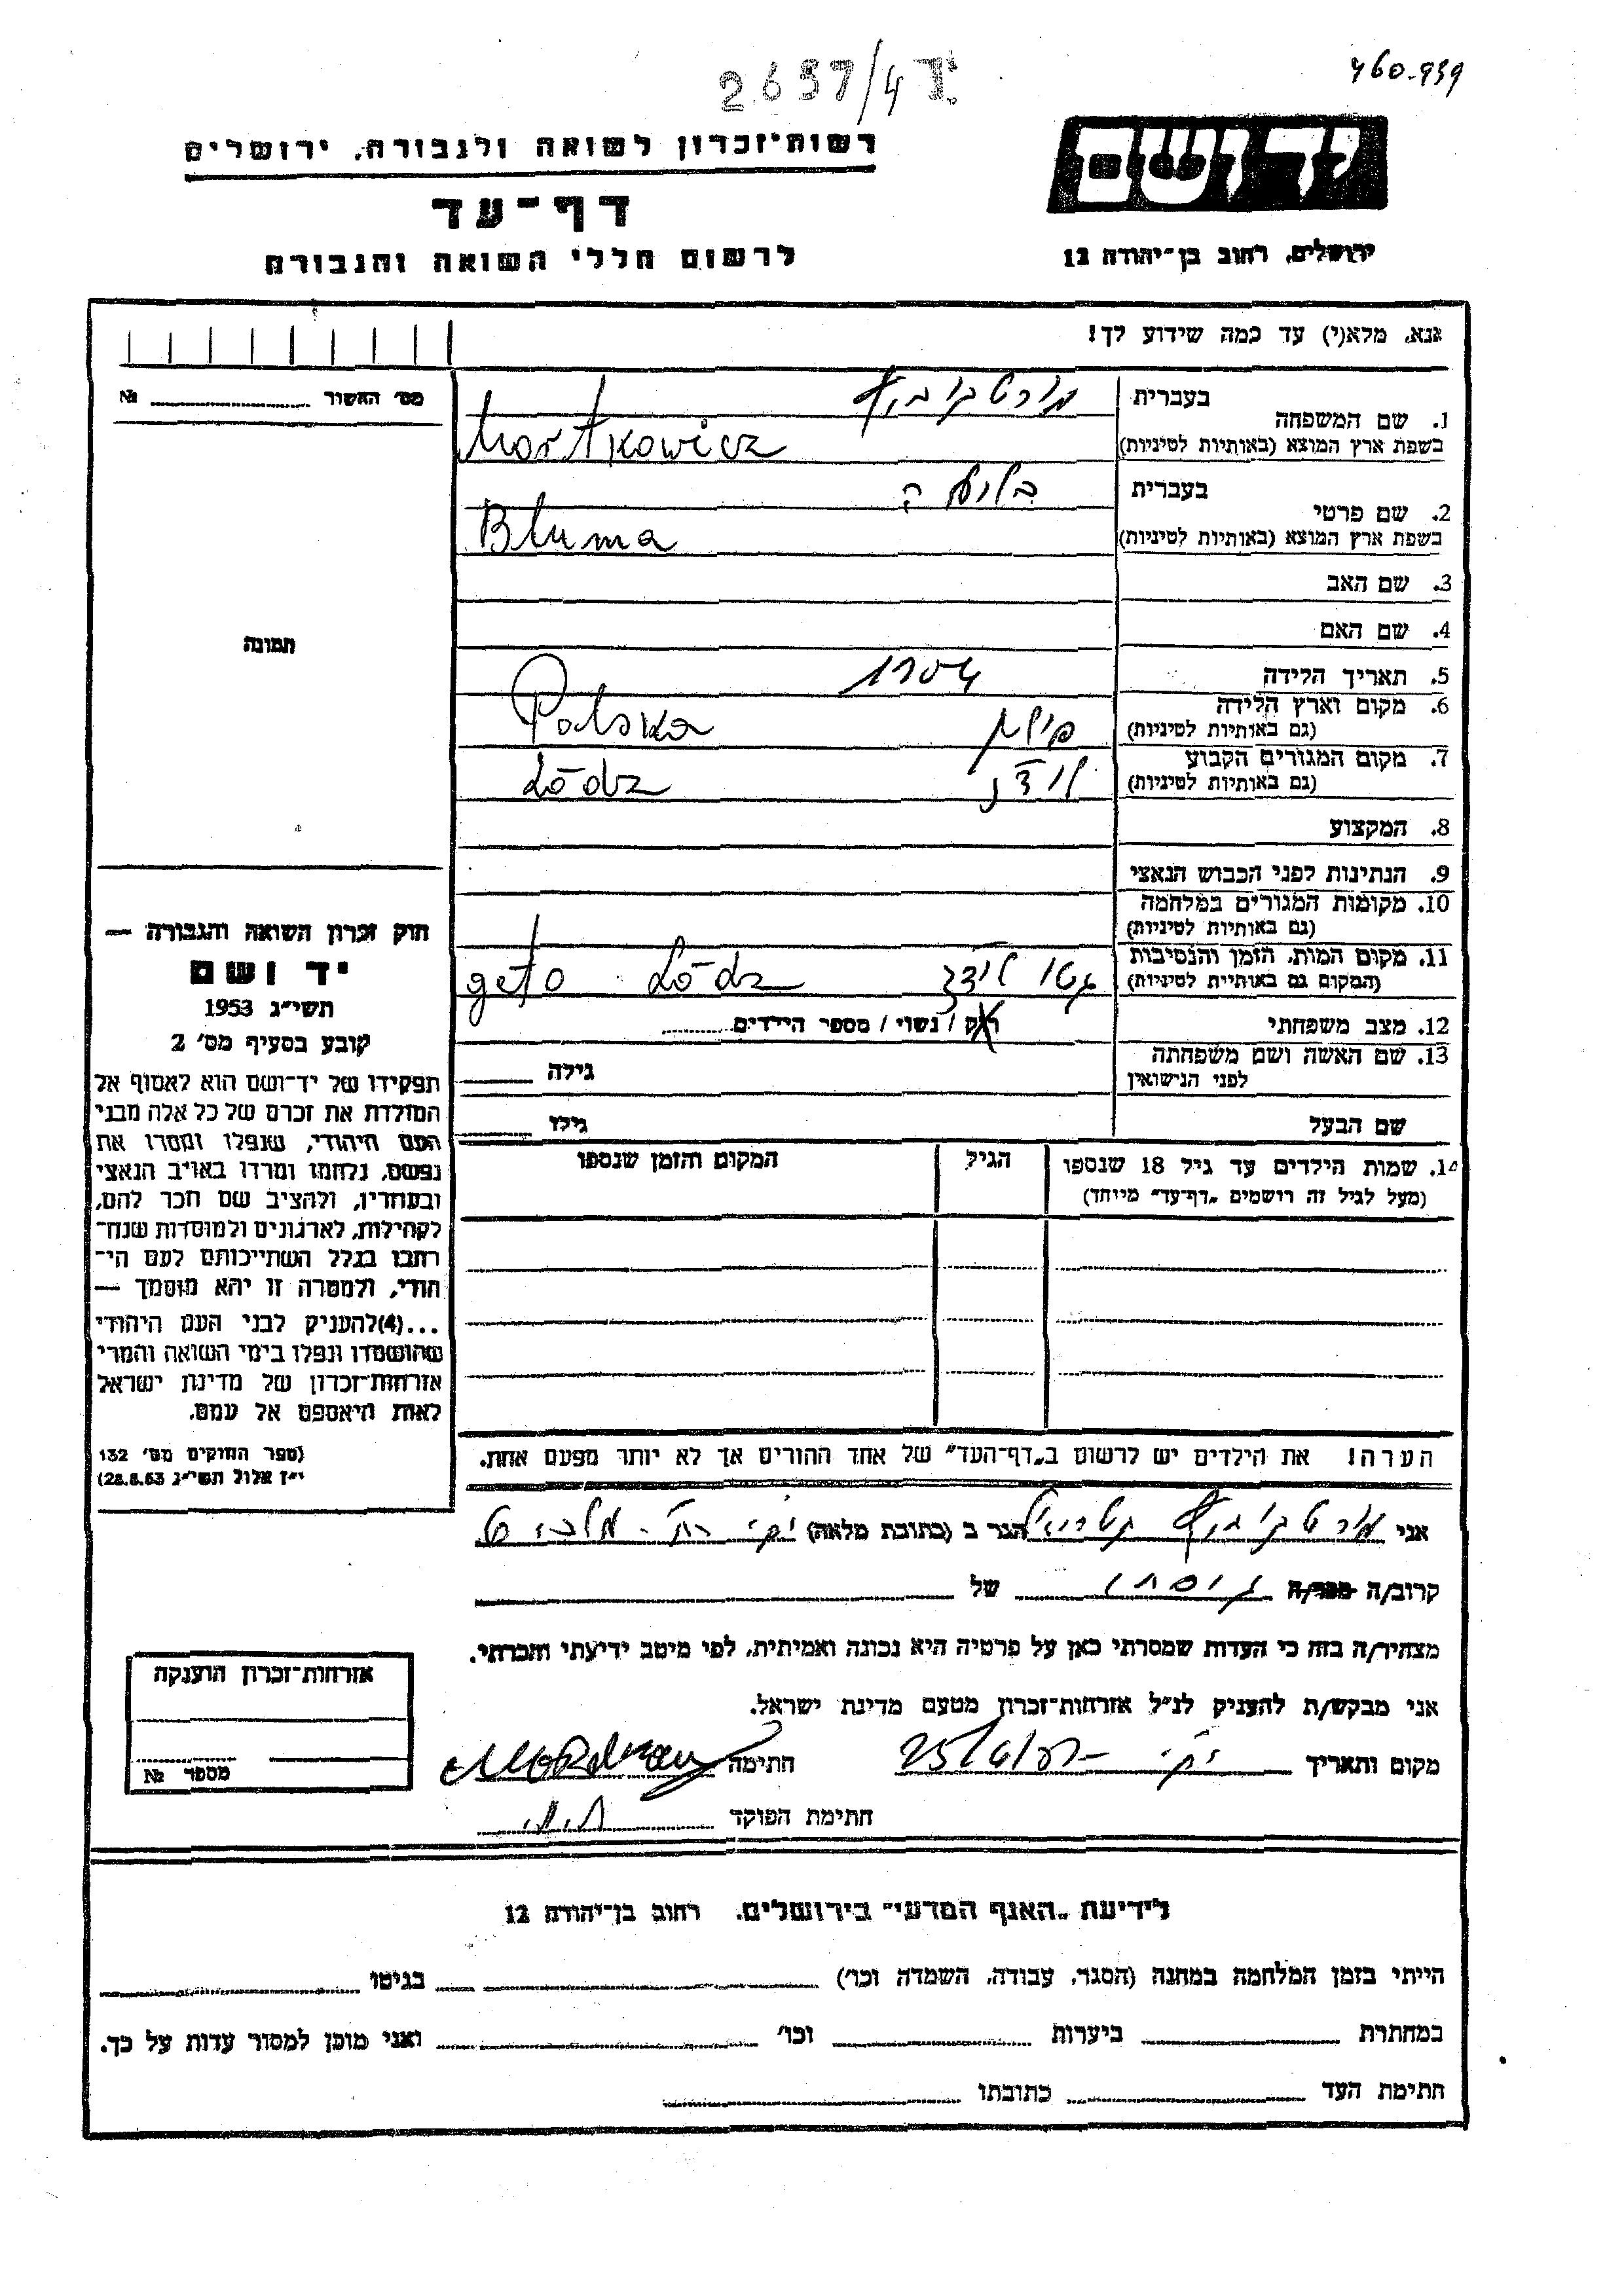 2657/4 ד'
460.939
רשות־זכרון לשואה ולגבורה, ירושלים
דף־עד
לרשום חללי השואה והגבורה
יד ושם
ירושלים, רחוב בן־יהודה 12
אנא, מלא(י) עד כמה שידוע לך!
מס' האשור № 
1. שם המשפחה
בעברית
Mortkowicz
בשפת ארץ המוצא (באותיות לטיניות)
2. שם פרטי
בעברית בלומה
Bluma
בשפת ארץ המוצא (באותיות לטיניות)
3. שם האב
4. שם האם
תמונה
5. תאריך הלידה 1904
6. מקום וארץ הלידה
(גם באותיות לטיניות)
פולין Polska
7. מקום המגורים הקבוע
(גם באותיות לטיניות)
לודז Łódz
8. המקצוע
9. הנתינות לפני הכבוש הנאצי
10. מקומות המגורים במלחמה
(גם באותיות לטיניות)
11. מקום המות, הזמן והנסיבות
(המקום גם באותיית לטיניות)
גטו לודז geto Łódz
12. מצב משפחתי רוק / נשוי / מספר הילדים
13. שם האשה ושם משפחתה
לפני הנישואין
גילה
שם הבעל גילו
14. שמות הילדים עד גיל 18 שנספו
(מעל לגיל זה רושמים „דף־עד" מיוחד)
הגיל
המקום והזמן שנספו
חוק זכרון השואה והגבורה —
יד ושם
תשי"ג 1953
קובע בסעיף מס' 2
תפקידו של יד־ושם הוא לאסוף אל
המולדת את זכרם של כל אלה מבני
העם היהודי, שנפלו ומסרו את
נפשם, נלחמו ומרדו באויב הנאצי
ובעוזריו, ולהציב שם וזכר להם,
לקהילות, לארגונים ולמוסדות שנח־
רבו בגלל השתייכותם לעם הי־
הודי, ולמטרה זו יהא מוסמך —
...(4)להעניק לבני העם היהודי
שהושמדו ונפלו בימי השואה והמרי
אזרחות־זכרון של מדינת ישראל
לאות היאספם אל עמם.
(ספר החוקים מס' 132
י"ז אלול תשי"ג 28.8.53)
הערה! את הילדים יש לרשום ב„דף־העד" של אחד ההורים אך לא יותר מפעם אחת.
אני הגר ב (כתובת מלאה)
קרוב/ה מכר/ה של
מצהיר/ה בזה כי העדות שמסרתי כאן על פרטיה היא נכונה ואמיתית, לפי מיטב ידיעתי והכרתי.
אני מבקש/ת להעניק לנ"ל אזרחות־זכרון מטעם מדינת ישראל.
מקום ותאריך חתימה
חתימת הפוקד
אזרחות־זכרון הוענקה
מספר №
לידיעת „האגף המדעי" בירושלים, רחוב בן־יהודה 12
הייתי בזמן המלחמה במחנה (הסגר, עבודה, השמדה וכו') בגיטו
במחתרת ביערות וכו' ואני מוכן למסור עדות על כך.
חתימת העד כתובתו